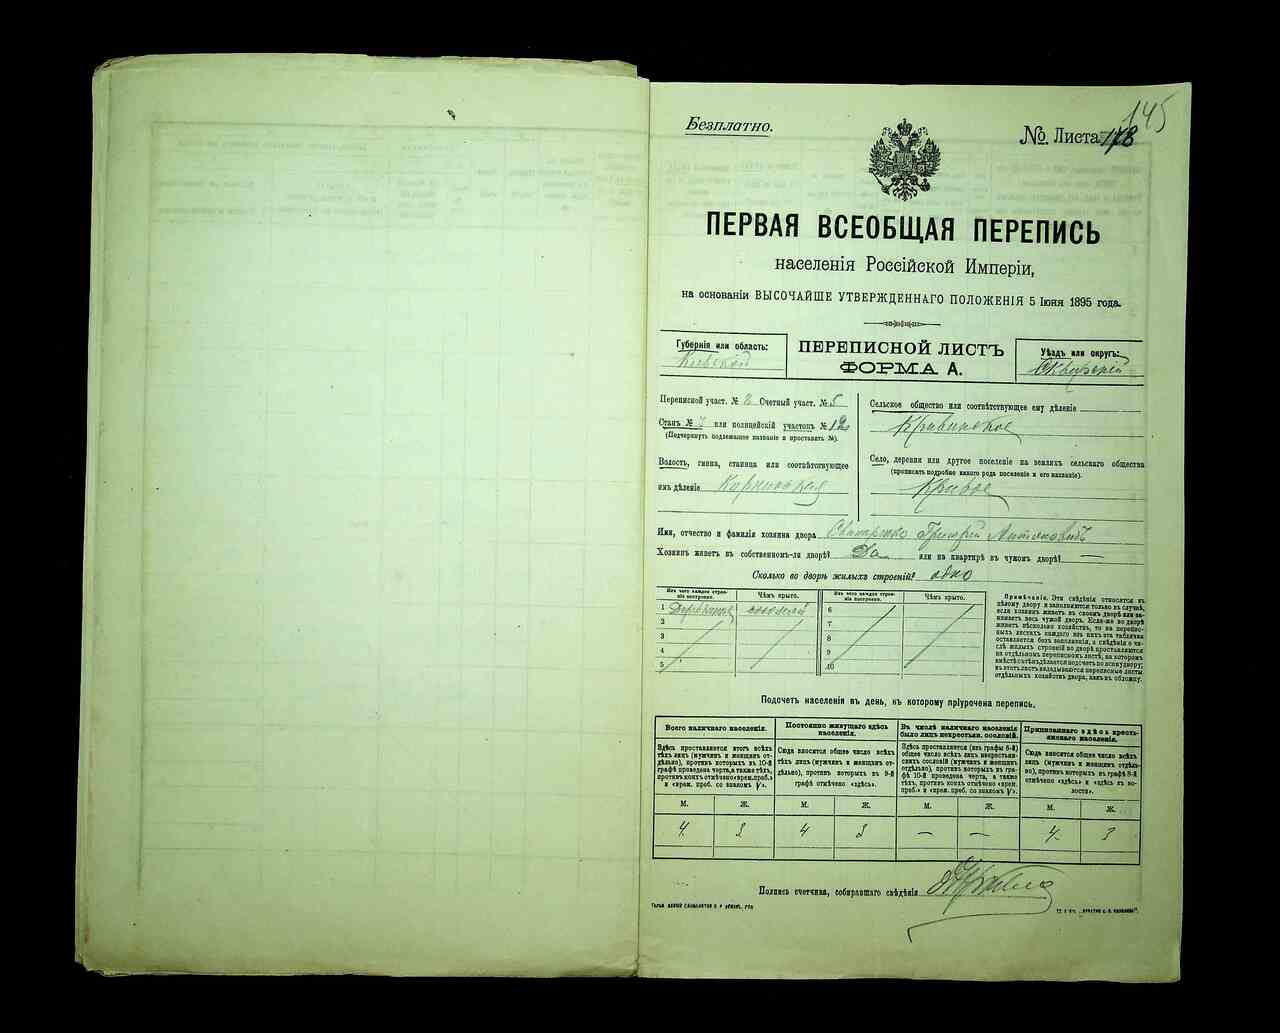 145
Безплатно.
№ Листа 178
ПЕРВАЯ ВСЕОБЩАЯ ПЕРЕПИСЬ
населенія Россійской Имперіи,
на основаніи ВЫСОЧАЙШЕ УТВЕРЖДЕННАГО ПОЛОЖЕНІЯ 5 Іюня 1895 года.
Губернія или область:
Кіевской
ПЕРЕПИСНОЙ ЛИСТЪ
ФОРМА А.
Уѣздъ или округъ:
Сквирскій
Переписной участ. № 2 Счетный участ. № 5
Станъ № или полицейскій участокъ № 12
(Подчеркнуть подлежащее названіе и проставить №).
Волость, гмина, станица или соотвѣтствующее
имъ дѣленіе Корнинская
Сельское общество или соотвѣтствующее ему дѣленіе
Кривинское
Село, деревня или другое поселеніе на земляхъ сельскаго общества
(прописать подробно какого рода поселеніе и его названіе).
Кривое
Имя, отчество и фамилія хозяина двора Григорій Антоновичъ
Хозяинъ живетъ въ собственномъ-ли дворѣ? Да или на квартирѣ въ чужомъ дворѣ? —
Сколько во дворѣ жилыхъ строеній? одно
Изъ чего каждое строеніе построено. Чѣмъ крыто. Изъ чего каждое строеніе построено. Чѣмъ крыто.
1 Деревянное соломой 6
2 7
3 8
4 9
5 10
Примѣчанія. Эти свѣдѣнія относятся къ
цѣлому двору и заполняются только въ случаѣ,
если хозяинъ живетъ въ своемъ дворѣ или за-
нимаетъ весь чужой дворъ. Если-же во дворѣ
живетъ нѣсколько хозяйствъ, то на перепис-
ныхъ листахъ каждаго изъ нихъ эта табличка
оставляется безъ заполненія, а свѣдѣнія о чи-
слѣ жилыхъ строеній во дворѣ проставляются
на отдѣльномъ переписномъ листѣ, на которомъ
вмѣстѣ съ тѣмъ дѣлается подсчетъ по всему двору;
въ этотъ листъ вкладываются переписные листы
отдѣльныхъ хозяйствъ двора, какъ въ обложку.
Подсчетъ населенія въ день, къ которому пріурочена перепись.
Всего наличнаго населенія.
Здѣсь проставляется итогъ всѣхъ
лицъ (мужчинъ и женщинъ от-
дѣльно), противъ которыхъ въ 10-й
графѣ проведена черта, а также тѣхъ,
противъ коихъ отмѣчено «врем. проб.»
и «врем. проб. со знакомъ V».
Постоянно живущаго здѣсь
населенія.
Сюда вносится общее число всѣхъ
тѣхъ лицъ (мужчинъ и женщинъ от-
дѣльно), противъ которыхъ въ 9-й
графѣ отмѣчено «здѣсь».
Въ числѣ наличнаго населенія
было лицъ некрестьян. сословій.
Здѣсь проставляется (изъ графы 8-й)
общее число всѣхъ лицъ некрестьян-
скихъ сословій (мужчинъ и женщинъ
отдѣльно), противъ которыхъ въ гра-
фѣ 10-й проведена черта, а также
тѣхъ, противъ коихъ отмѣчено «врем.
проб.» и «врем. проб. со знакомъ V».
Приписаннаго здѣсь кресть-
янскаго населенія.
Сюда вносится общее число всѣхъ
лицъ (мужчинъ и женщинъ отдѣль-
но), противъ которыхъ въ графѣ 8-й
отмѣчено «здѣсь» и «здѣсь въ во-
лости».
М. Ж. М. Ж. М. Ж. М. Ж.
4 3 4 3 — — 4 3
Подпись счетчика, собиравшаго свѣдѣнія